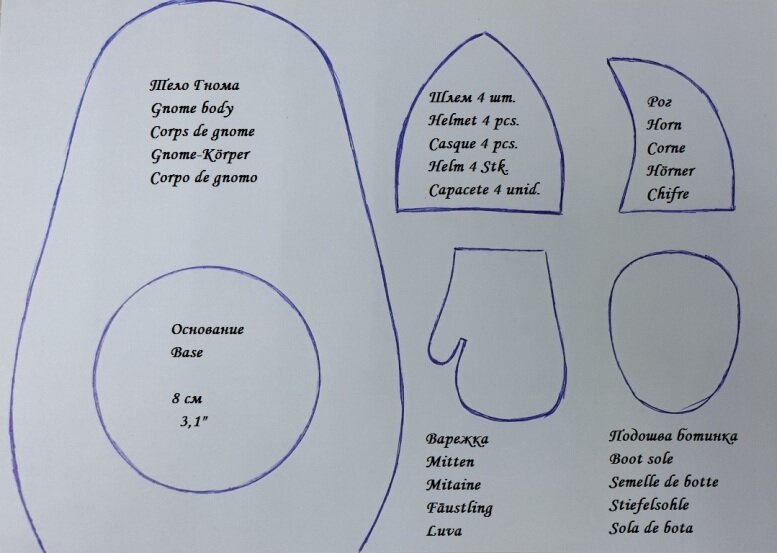 Тело Гнома
Gnome body
Corps de gnome
Gnome-Körper
Corpo de gnomo
Шлем 4 шт.
Helmet 4 pcs.
Casque 4 pcs.
Helm 4 Stk.
Capacete 4 unid.
Рог
Horn
Corne
Hörner
Chifre
Основание
Base
8 см
3,1"
Варежка
Mitten
Mitaine
Fäustling
Luva
Подошва ботинка
Boot sole
Semelle de botte
Stiefelsohle
Sola de bota